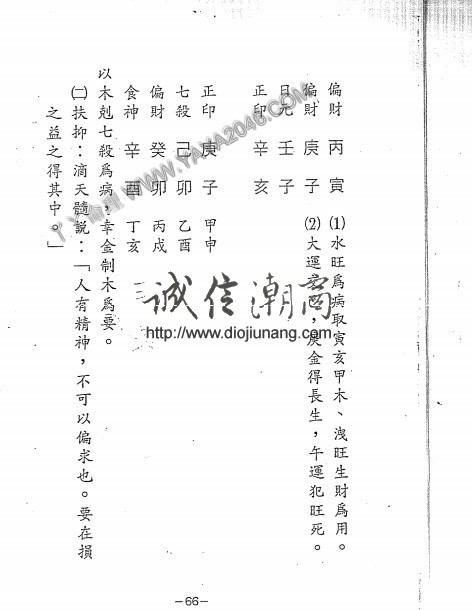 偏財 丙 寅 ⑴水旺爲病取寅亥甲木、洩旺生財爲用。
偏財 庚 子 ⑵大運,庚金得長生,午運犯旺死。
日元 壬 子
正印 辛 亥
正印 庚 子 甲申
七殺 己 卯 乙酉
偏財 癸 卯 丙戌
食神 辛 酉 丁亥
以木剋七殺爲病,幸金制木爲要。
㈡扶抑:滴天髓說:「人有精神,不可以偏求也。要在損
之益之得其中。」
誠信潮商
http://www.diojiunang.com/
WWW.YAMA2046.COM
—66—